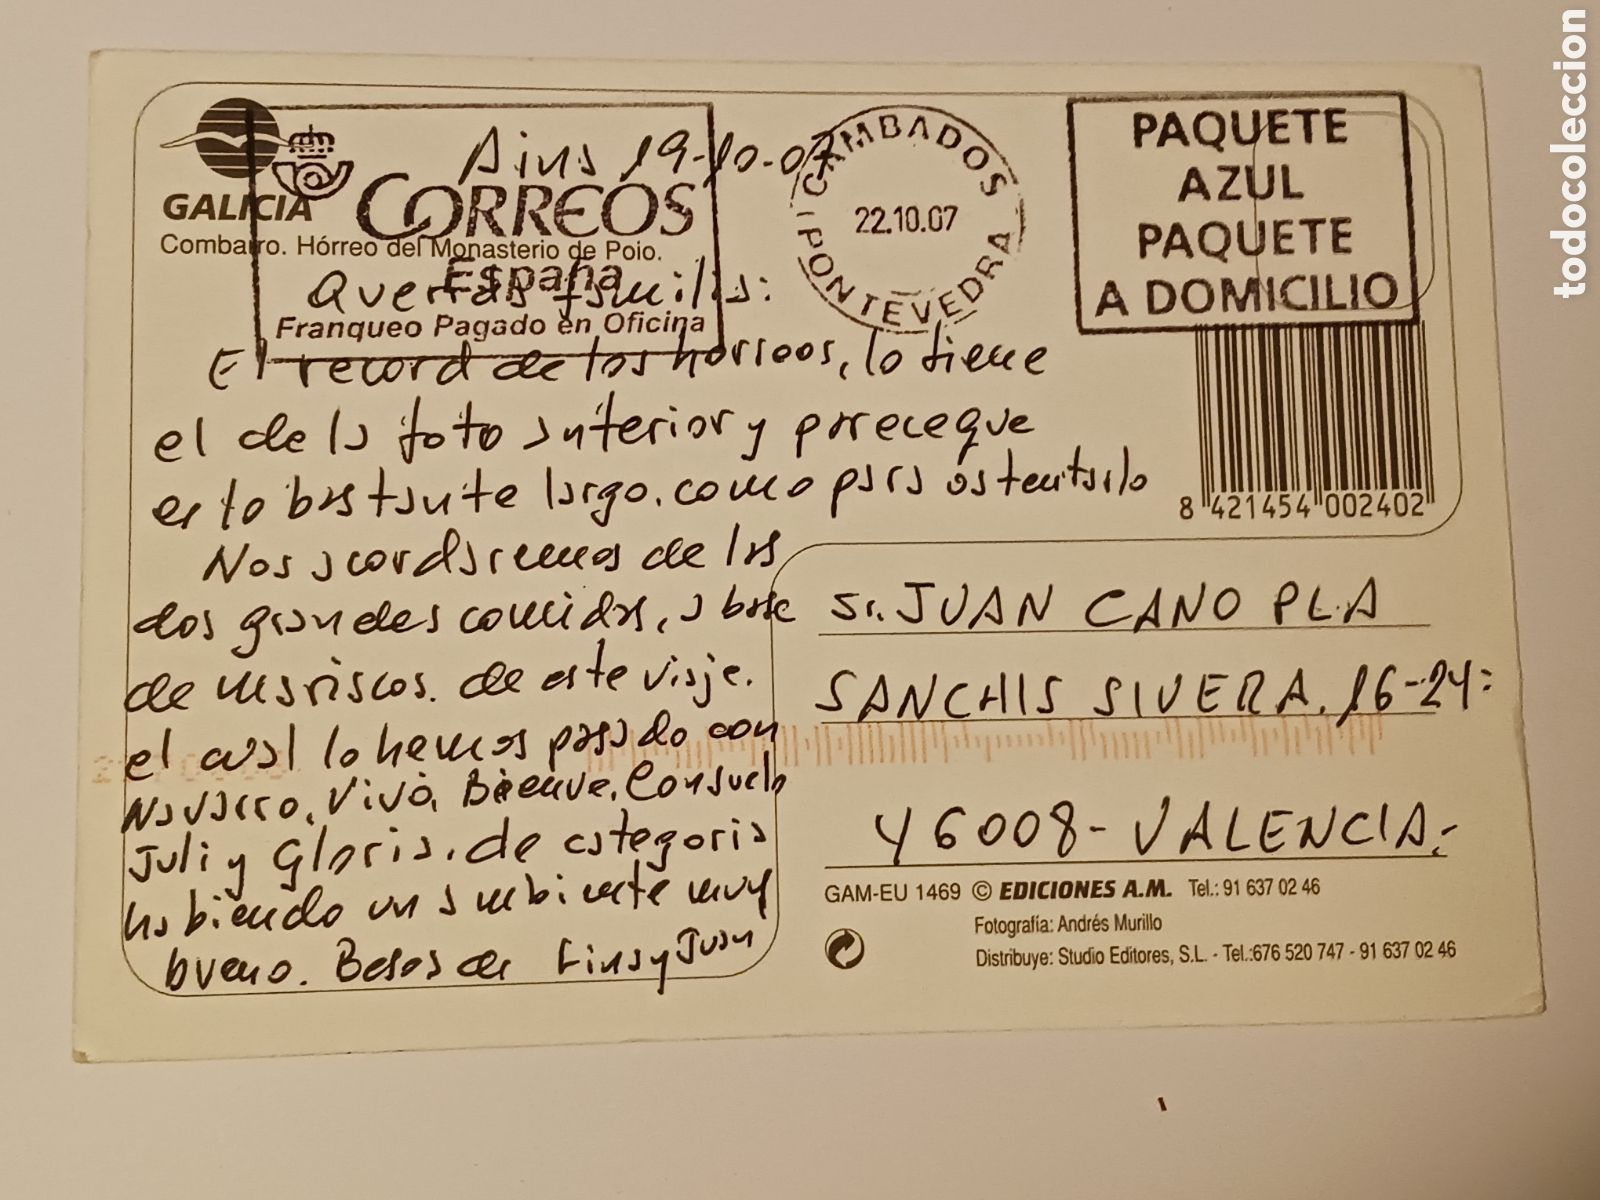 Ains 19-10-07
GALICIA
CORREOS
Combarro. Hórreo del Monasterio de Poio.
España
Querida familia:
Franqueo Pagado en Oficina
CAMBADOS
22.10.07
(PONTEVEDRA)
PAQUETE
AZUL
PAQUETE
A DOMICILIO
El record de los horreos, lo tiene
el de la foto anterior y parece que
esto bastante largo. como para ostentarlo
Nos acordaremos de las
dos grandes comidas, a base
de mariscos. de este viaje.
el cual lo hemos pasado con
Navarro, Vivó, Bienve, Consuelo
Juli y Gloria. de categoria
habiendo un ambiente muy
bueno. Besos de Fina y Juan
8 421454 002402
Sr. JUAN CANO PLA
SANCHIS SIVERA. 16-24:
46008-VALENCIA.-
GAM-EU 1469 © EDICIONES A.M. Tel.: 91 637 02 46
Fotografía: Andrés Murillo
Distribuye: Studio Editores, S.L. - Tel.:676 520 747 - 91 637 02 46
todocoleccion